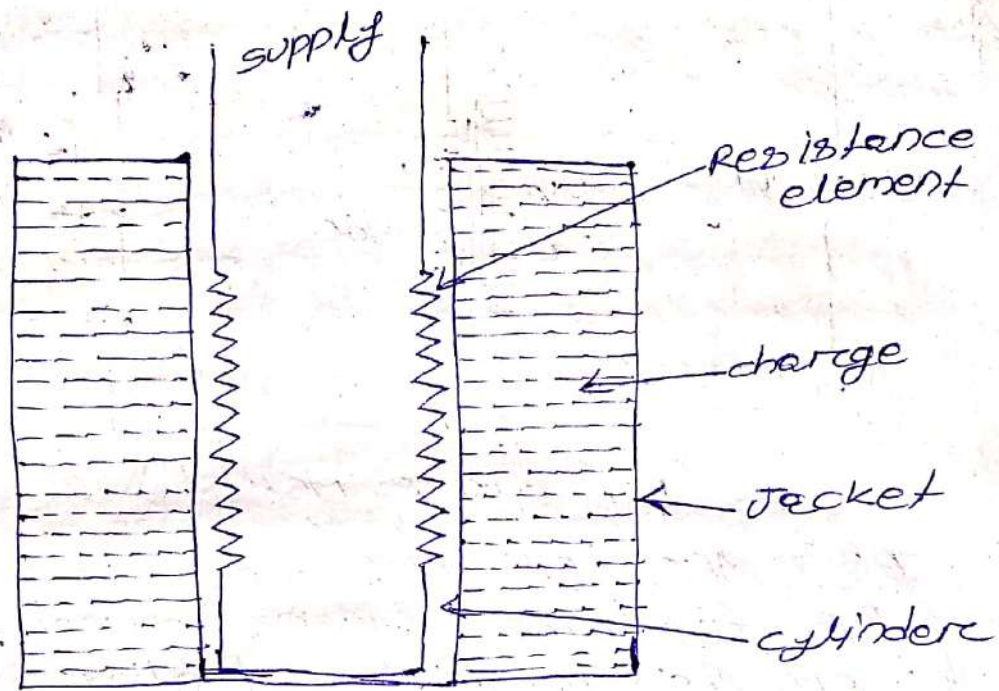 supply
Resistance
element
charge
Jacket
cylinder